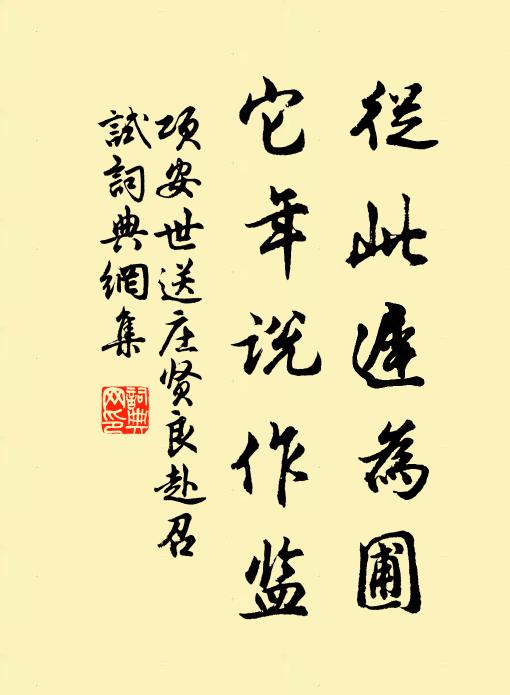 從此遲為圃
它年說作监
项安世送庄贤良赴召
試詞典網集
詞典网印